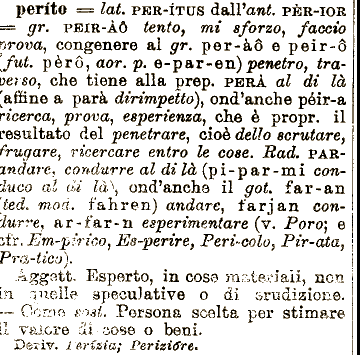 períto = lat. PER-ITUS dall'ant. PÈR-IOR
= gr. PEIR-ÀÔ tento, mi sforzo, faccio
prova, congenere al gr. per-àô e peir-ô
(fut. pèrô, aor. p. e-par-en) penetro, tra-
verso, che tiene alla prep. PERÀ al di là
(affine a parà dirimpetto), ond'anche péir-a
ricerca, prova, esperienza, che è propr. il
resultato del penetrare, cioè dello scrutare,
frugare, ricercare entro le cose. Rad. PAR-
andare, condurre al di là (pi-par-mi con-
duco al di là), ond'anche il got. far-an
(ted. mod. fahren) andare, farjan con-
durre, ar-far-n esperimentare (v. Poro; e
cfr. Em-pírico, Es-perire, Peri-colo, Pir-ata,
Pra-tico).
Aggett. Esperto, in cose materiali, non
in quelle speculative o di erudizione.
— Come sost. Persona scelta per stimare
il valore di cose o beni.
Deriv. Perízia; Periziòre.